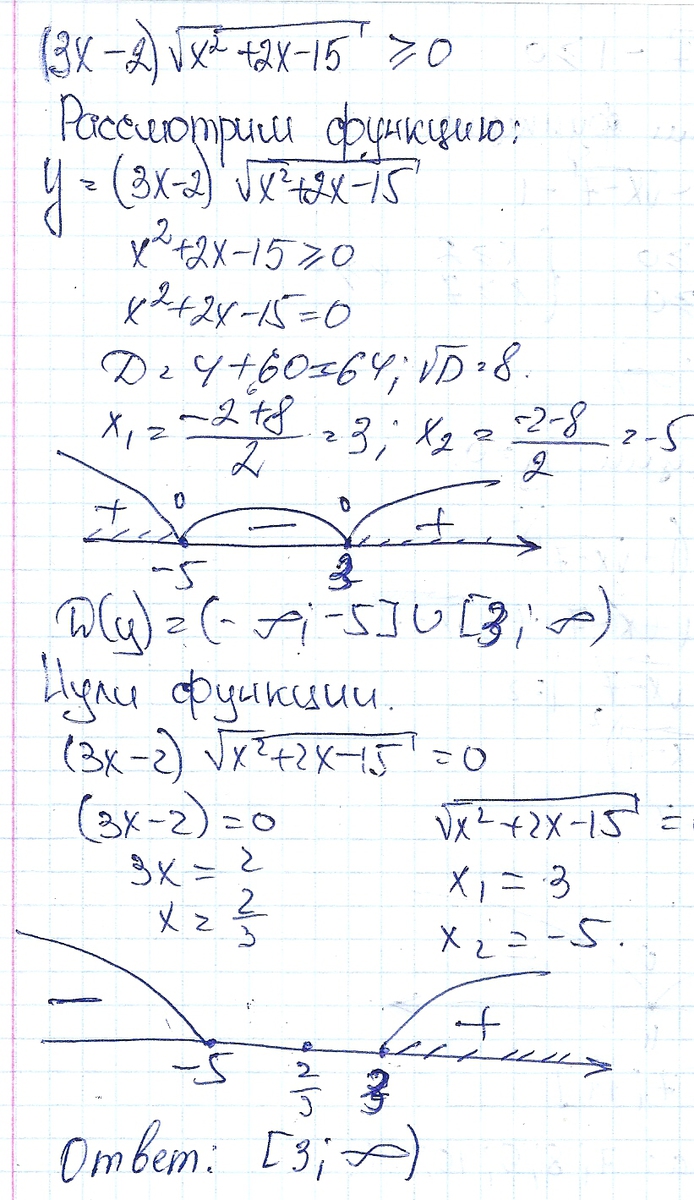 (3x-2)√(x²+2x-15) ≥ 0
Рассмотрим функцию:
y = (3x-2) √(x²+2x-15)
x²+2x-15 ≥ 0
x²+2x-15=0
D = 4+60=64; √D = 8.
x₁ = (-2+8)/2 = 3; x₂ = (-2-8)/2 = -5
+ 0 − 0 +
-5 3
D(y) = (-∞; -5] ∪ [3; ∞)
Нули функции.
(3x-2) √(x²+2x-15) = 0
(3x-2) = 0 √(x²+2x-15) =
3x = 2 x₁ = 3
x = 2/3 x₂ = -5.
− +
-5 2/3 3
Ответ: [3; ∞)